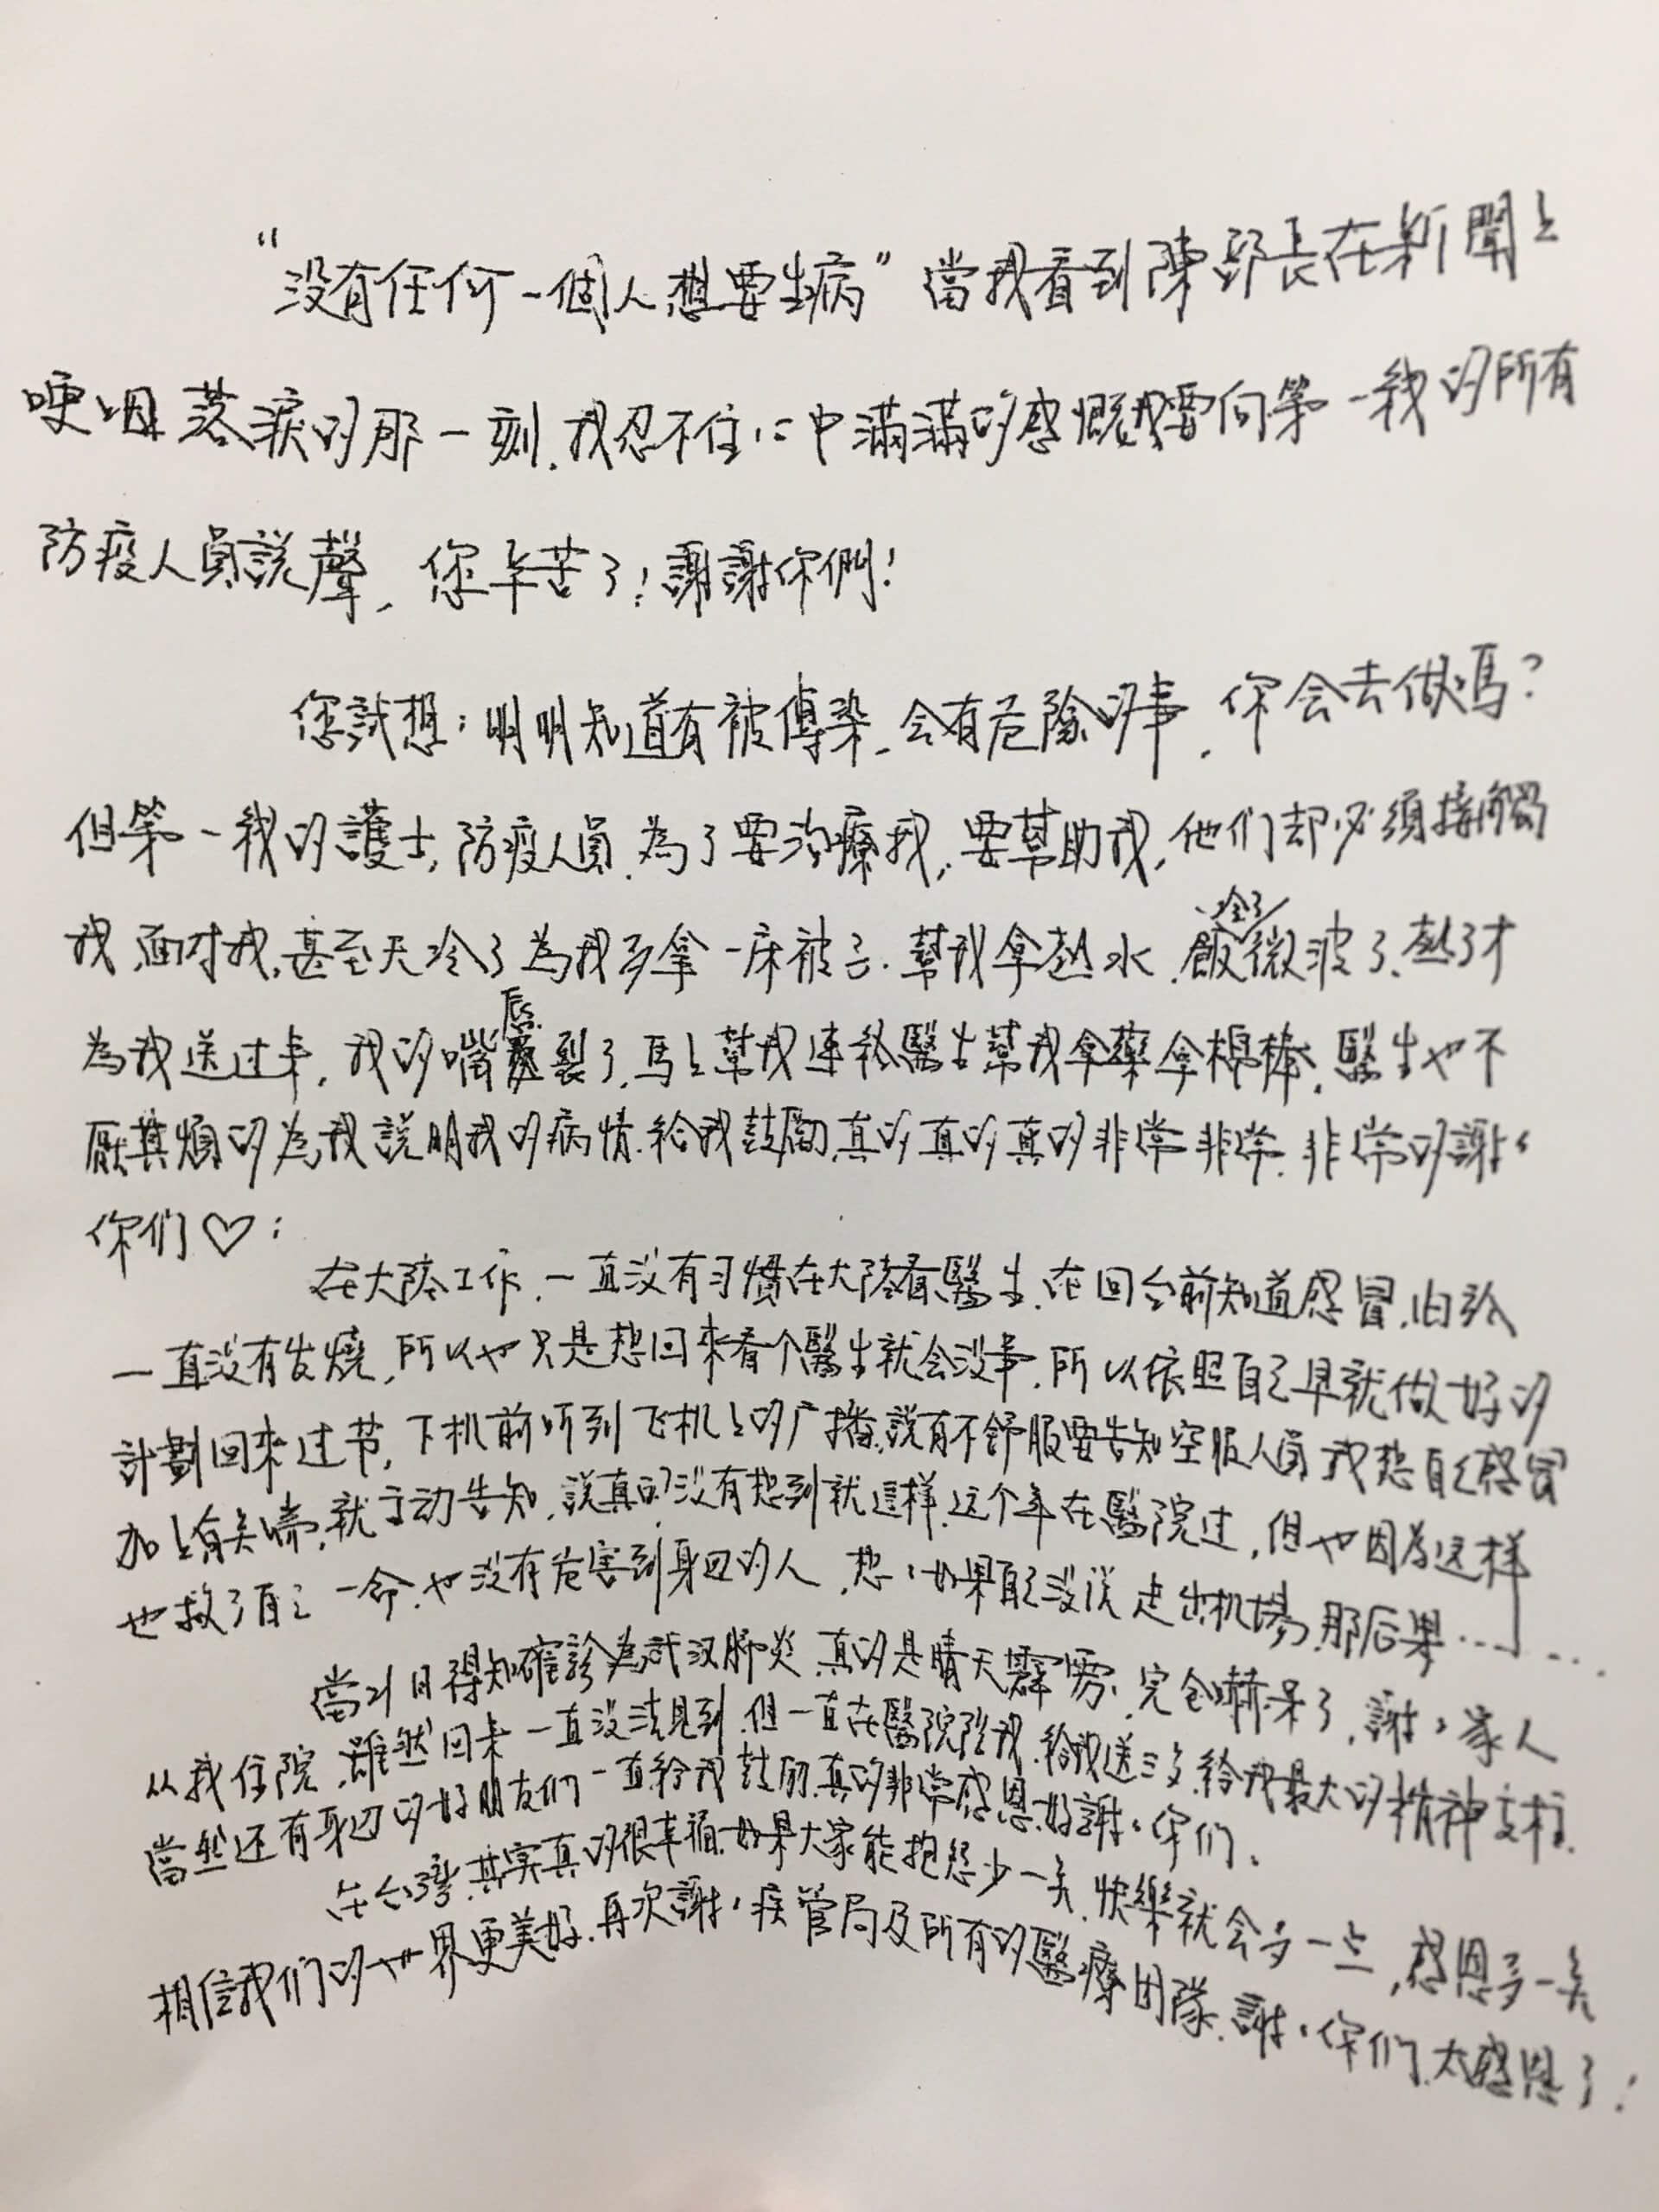 “没有任何一個人想要生病”當我看到陳部長在新聞上
哽咽落淚的那一刻.我忍不住心中滿滿的感慨我要向第一綫的所有
防疫人員說聲,您辛苦了!謝謝你們!
您試想:明明知道有被傳染、会有危險的事,你会去做嗎?
但第一綫的護士,防疫人員.為了要治療我,要幫助我,他们却必須接觸
冷了
我,面对我,甚至天冷了為我多拿一床被子.幫我拿热水.飯微波了、热了才
唇
為我送过来,我的嘴裂了,馬上幫我連絡醫生幫我拿藥拿棉棒,醫生也不
厭其煩的為我說明我的病情.給我鼓勵,真的真的真的非常非常.非常的謝々
你们♡:
在大陸工作.一直没有习慣在大陸看醫生.在回台前知道感冒,但
一直没有发燒,所以也只是想回來看个醫生就会没事.所以依照自己早就做好的
計劃回來过节,下机前听到飞机上的广播,說有不舒服要告知空服人員我想自己感冒
加上有点喘,就主动告知,說真的没有想到就這样.这个年在醫院过,但也因為这样
也救了自己一命.也没有危害到身边的人,想,如果自己没说走出机場,那后果……
當21日得知確診為武汉肺炎.真的是晴天霹靂.完全嚇呆了,謝々家人
从我住院,雖然回来一直没法見到.但一直在醫院陪我.給我送三歺.給我最大的精神支柱.
當然还有身边的好朋友们一直給我鼓励.真的非常感恩.好謝々你们.
在台灣.其実真的很幸福.如果大家能抱怨少一点.快樂就会多一点,感恩多一点
相信我们的世界更美好.再次謝々疾管局及所有的醫療团隊.謝々你们.太感恩了!